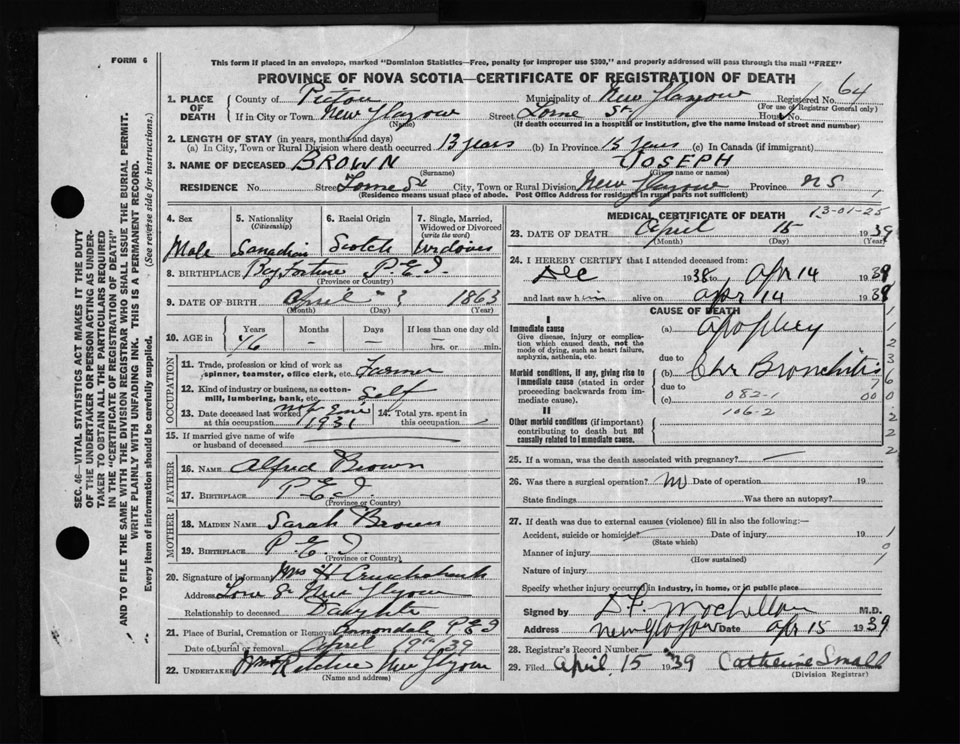 FORM 6
This form if placed in an envelope, marked "Dominion Statistics—Free, penalty for improper use $300," and properly addressed will pass through the mail "FREE"
PROVINCE OF NOVA SCOTIA—CERTIFICATE OF REGISTRATION OF DEATH
1. PLACE OF DEATH County of Pictou Municipality of New Glasgow Registered No. 64
(For use of Registrar General only)
If in City or Town New Glasgow Street Lorne St House No.
(Name) (If death occurred in a hospital or institution, give the name instead of street and number)
2. LENGTH OF STAY (in years, months and days)
(a) In City, Town or Rural Division where death occurred 13 years (b) In Province 13 years (c) In Canada (if immigrant)
3. NAME OF DECEASED BROWN JOSEPH
(Surname) (Given name or names)
RESIDENCE No. Street Lorne St City, Town or Rural Division New Glasgow Province NS
(Residence means usual place of abode. Post Office Address for residents in rural parts not sufficient)
4. Sex 5. Nationality (Citizenship) 6. Racial Origin 7. Single, Married, Widowed or Divorced (write the word)
Male Canadian Scotch
8. BIRTHPLACE Bay Fortune P.E.I.
(Province or Country)
9. DATE OF BIRTH April 1863
(Month) (Day) (Year)
10. AGE in Years Months Days If less than one day old
76 — — hrs. or min.
OCCUPATION
11. Trade, profession or kind of work as spinner, teamster, office clerk, etc. Farmer
12. Kind of industry or business, as cotton-mill, lumbering, bank, etc. Self
13. Date deceased last worked at this occupation 1931 14. Total yrs. spent in this occupation
15. If married give name of wife or husband of deceased
FATHER
16. NAME Alfred Brown
17. BIRTHPLACE P.E.I.
(Province or Country)
MOTHER
18. MAIDEN NAME Sarah Brown
19. BIRTHPLACE P.E.I.
(Province or Country)
20. Signature of informant Mrs H Cruickshank
Address Lorne St New Glasgow
Relationship to deceased Daughter
21. Place of Burial, Cremation or Removal Annandale P.E.I
Date of burial or removal April 19th 1939
22. UNDERTAKER New Glasgow
(Name and address)
MEDICAL CERTIFICATE OF DEATH 13-01-25
23. DATE OF DEATH April 15 1939
(Month) (Day) (Year)
24. I HEREBY CERTIFY that I attended deceased from:
Dec 1938 to Apr 14 1939
and last saw him alive on Apr 14 1939
CAUSE OF DEATH
I
Immediate cause (a)
Give disease, injury or complication which caused death, not the mode of dying, such as heart failure, asphyxia, asthenia, etc.
due to
Morbid conditions, if any, giving rise to immediate cause (stated in order proceeding backwards from immediate cause). (b) Chr Bronchitis
due to
(c) 082-1
106-2
II
Other morbid conditions (if important) contributing to death but not causally related to immediate cause.
25. If a woman, was the death associated with pregnancy?
26. Was there a surgical operation? No Date of operation 19
State findings Was there an autopsy?
27. If death was due to external causes (violence) fill in also the following:—
Accident, suicide or homicide? Date of injury 19
(State which)
Manner of injury
(How sustained)
Nature of injury
Specify whether injury occurred in industry, in home, or in public place
Signed by M.D.
Address New Glasgow Date Apr 15 1939
28. Registrar's Record Number
29. Filed April 15 1939 Catherine Small
(Division Registrar)
SEC. 46—VITAL STATISTICS ACT MAKES IT THE DUTY
OF THE UNDERTAKER OR PERSON ACTING AS UNDERTAKER
TO OBTAIN ALL THE PARTICULARS REQUIRED
IN THE "CERTIFICATE OF REGISTRATION OF DEATH"
AND TO FILE THE SAME WITH THE DIVISION REGISTRAR WHO SHALL ISSUE THE BURIAL PERMIT.
WRITE PLAINLY WITH UNFADING INK. THIS IS A PERMANENT RECORD.
Every item of information should be carefully supplied. (See reverse side for instructions.)